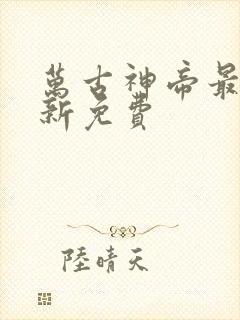 萬古神帝最
新免費
陸晴天